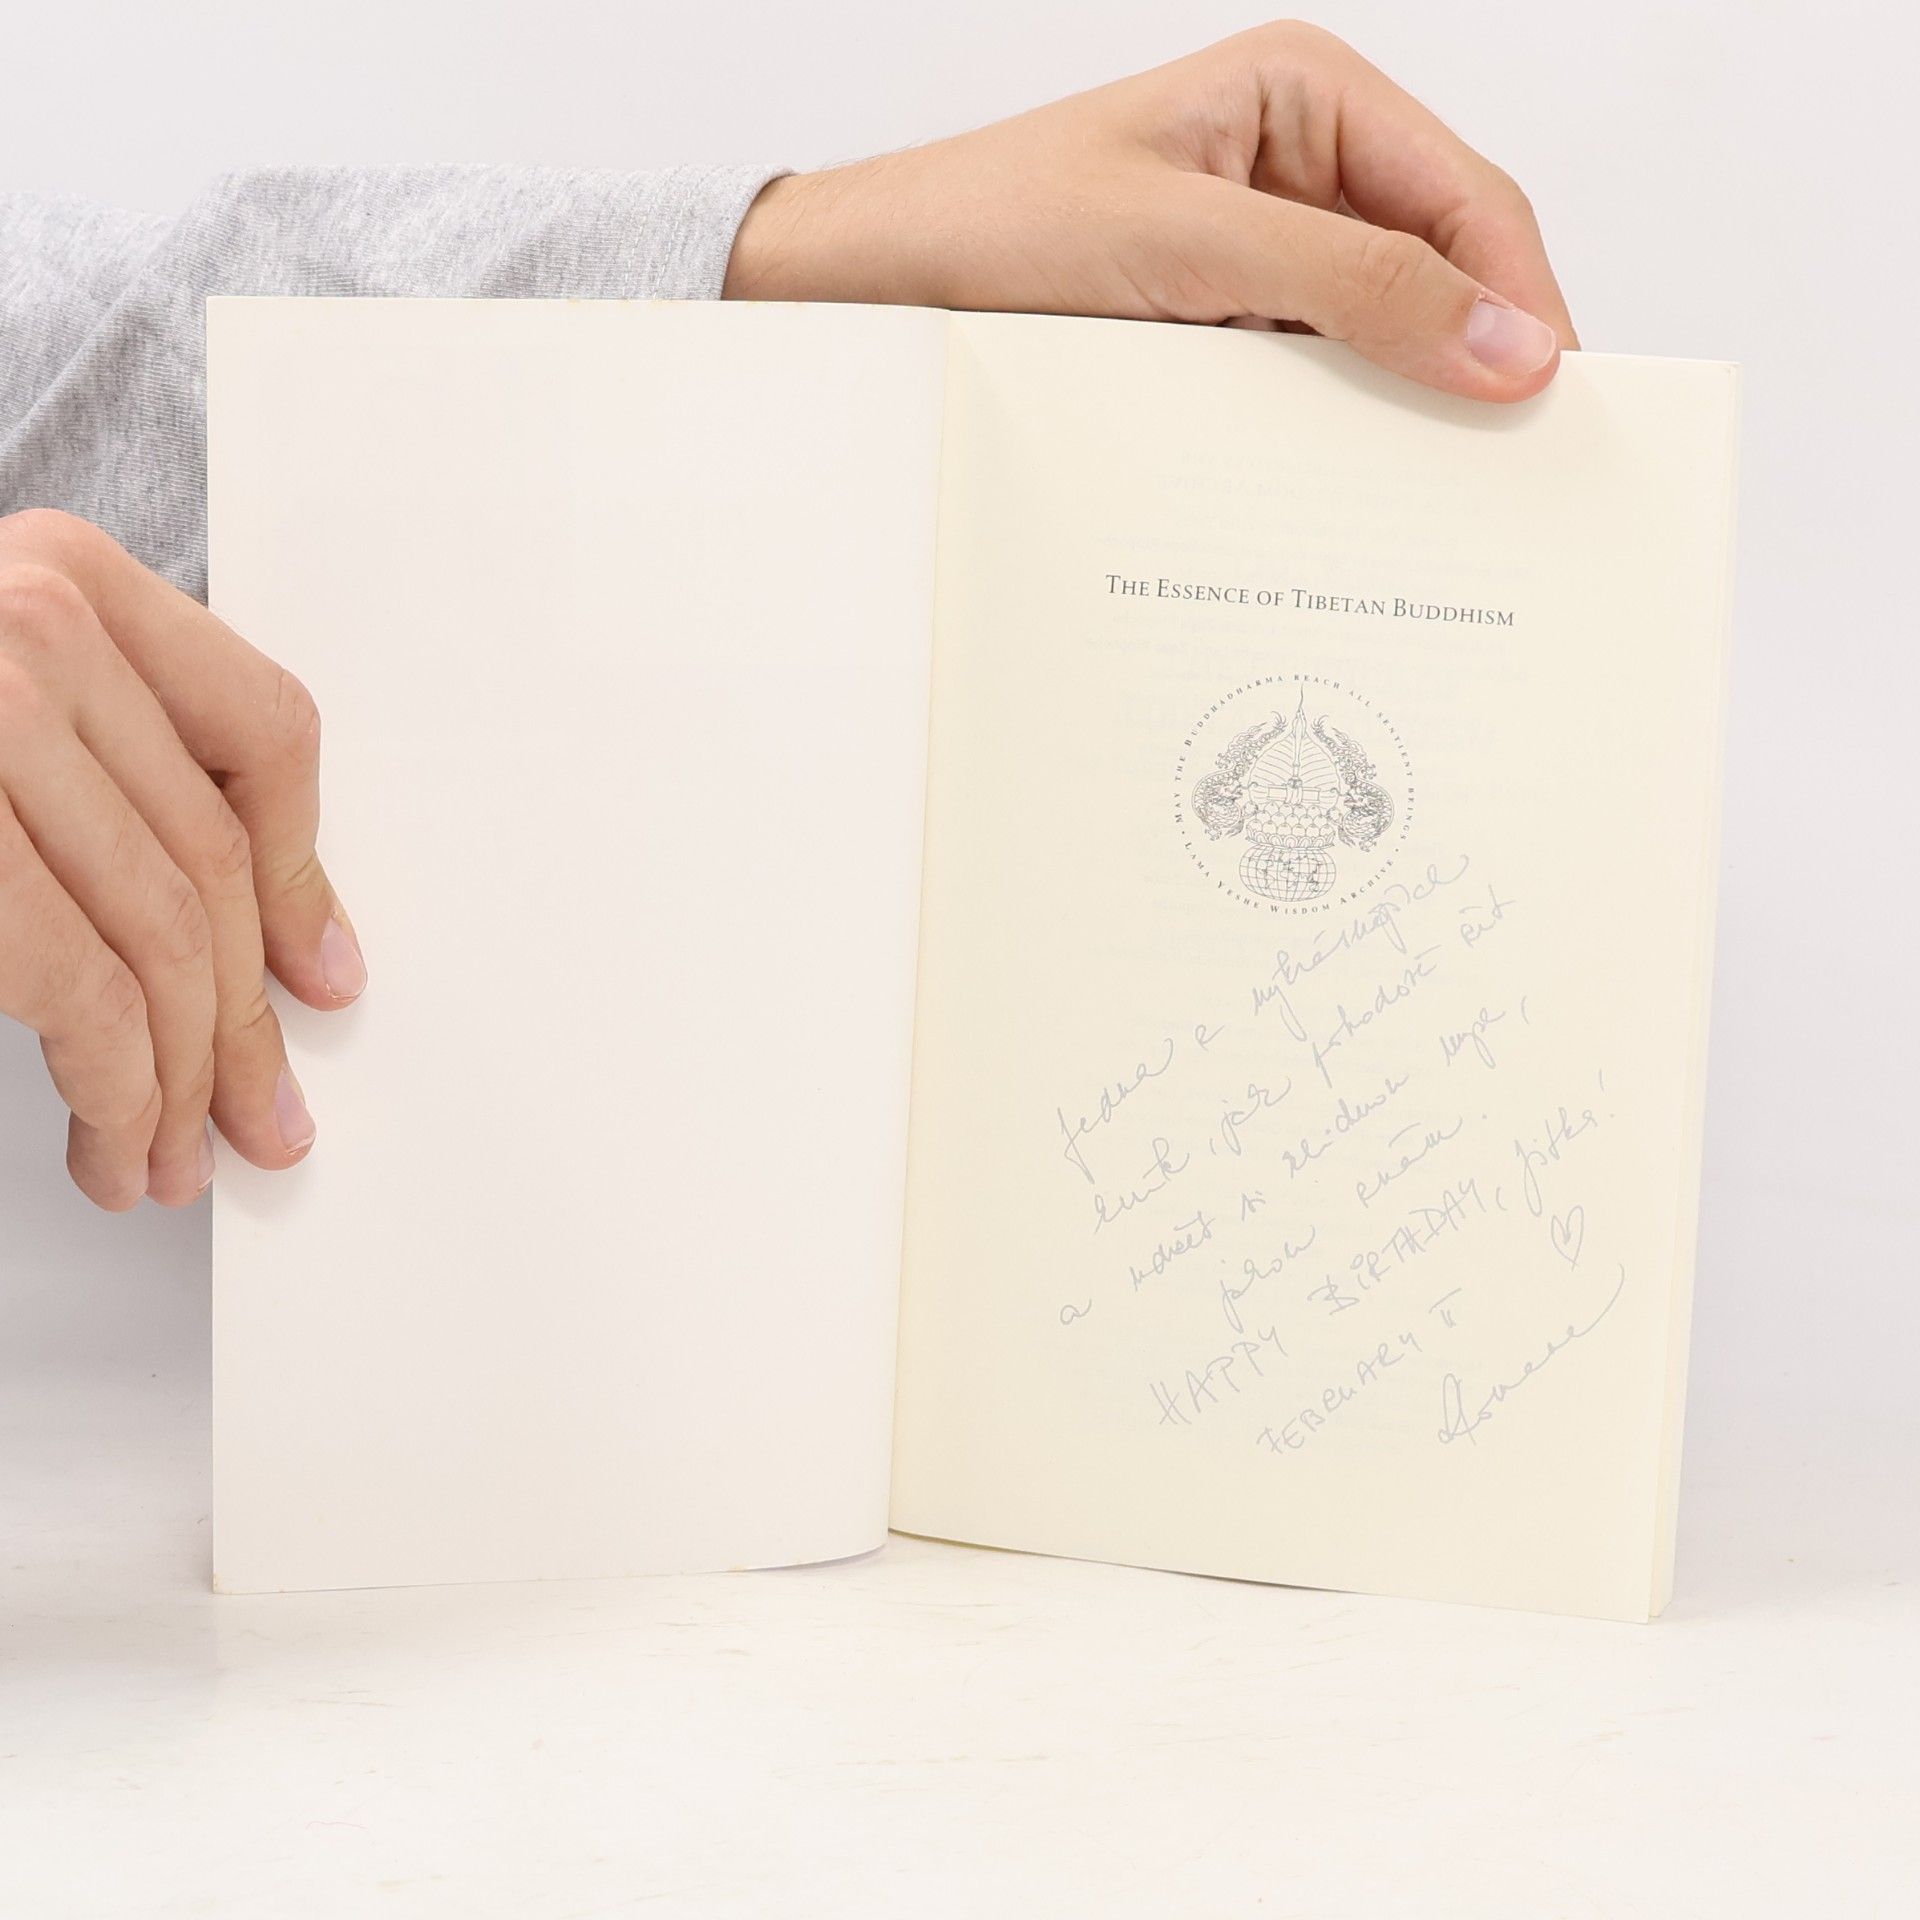 THE ESSENCE OF TIBETAN BUDDHISM
MAY THE BUDDHADHARMA REACH ALL SENTIENT BEINGS
• LAMA YESHE WISDOM ARCHIVE •
Jedna z
jak pohodově žít
a udržet si klidnou mysl,
jakou znám.
HAPPY BIRTHDAY, Jitka!
FEBRUARY II